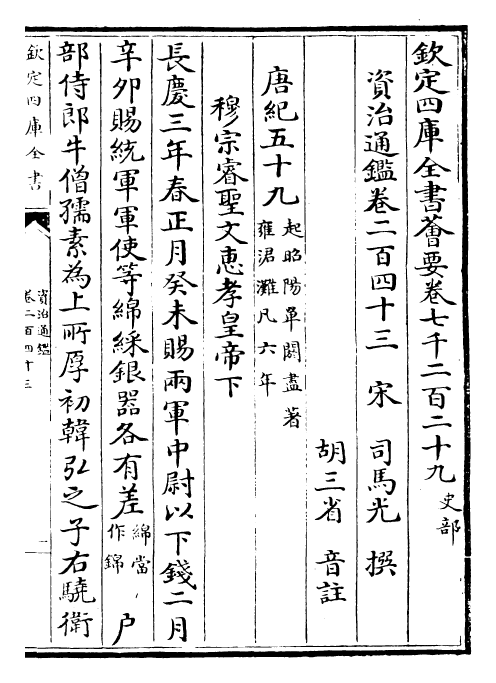 欽定四庫全書薈要卷七千二百二十九 史部
資治通鑑卷二百四十三 宋 司馬光 撰
胡三省 音註
唐紀五十九 起昭陽單閼盡著雍涒灘凡六年
穆宗睿聖文惠孝皇帝下
長慶三年春正月癸未賜兩軍中尉以下錢二月
辛卯賜統軍軍使等綿綵銀器各有差 綿當作錦 户
部侍郎牛僧孺素為上所厚初韓弘之子右驍衛
欽定四庫全書
資治通鑑
卷二百四十三
一